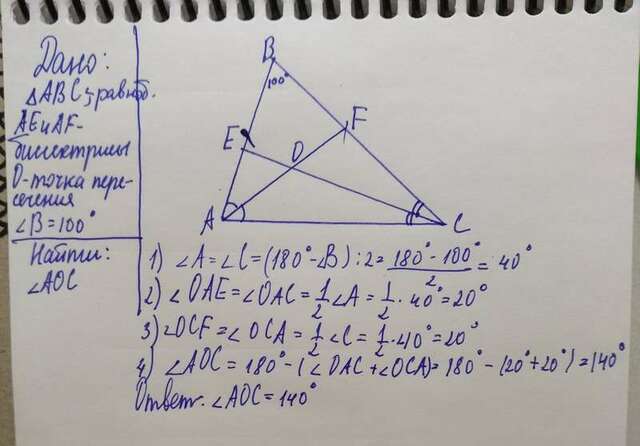 Дано:
△ABC-равноб.
AE и AF-
биссектрисы
O-точка пере-
сечения
∠B=100°
Найти:
∠AOC
B
100°
F
E
O
A
C
1) ∠A=∠C=(180°-∠B):2=(180°-100°)/2=40°
2) ∠OAE=∠OAC=1/2∠A=1/2·40°=20°
3) ∠OCF=∠OCA=1/2∠C=1/2·40°=20°
4) ∠AOC=180°-(∠OAC+∠OCA)=180°-(20°+20°)=140°
Ответ. ∠AOC=140°